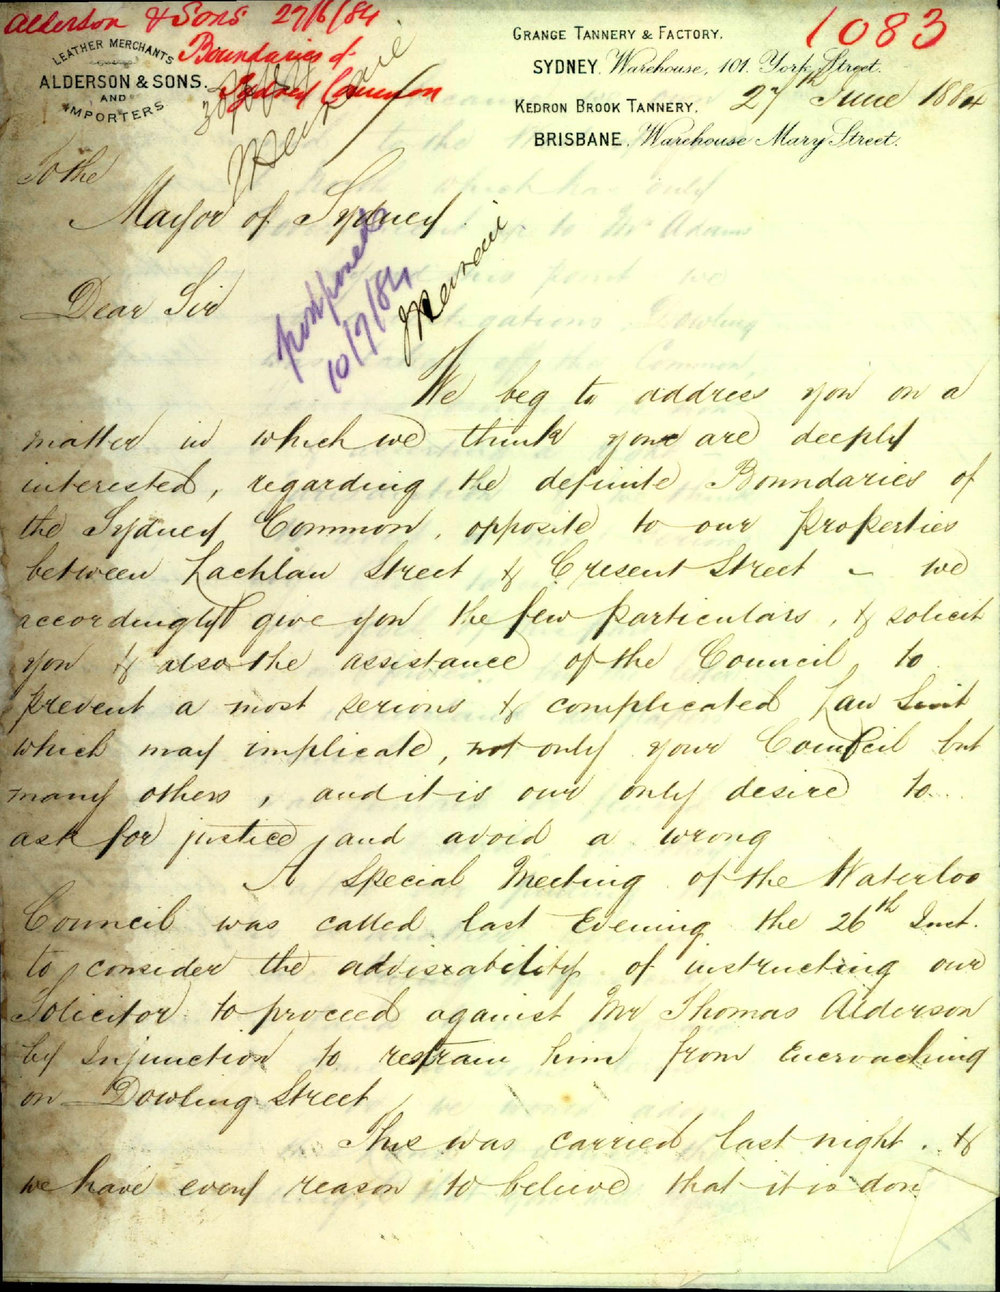 Alderson & Sons 27/6/84
Boundaries of
Sydney Common
1083
LEATHER MERCHANTS
ALDERSON & SONS.
AND
IMPORTERS
GRANGE TANNERY & FACTORY.
SYDNEY. Warehouse, 101. York Street.
KEDRON BROOK TANNERY.
BRISBANE. Warehouse Mary Street.
27th June 1884
To the
Mayor of Sydney
postponed
10/7/84
Dear Sir
We beg to address you on a
matter in which we think you are deeply
interested, regarding the definite Boundaries of
the Sydney Common, opposite to our properties
between Lachlan Street & Cresent Street - we
accordingly give you the few particulars, & solicit
you & also the assistance of the Council, to
prevent a most serious & complicated Law Suit
which may implicate, not only your Council but
many others, and it is our only desire to
ask for justice, and avoid a wrong
A Special Meeting of the Waterloo
Council was called last Evening the 26th Inst.
to consider the advisability of instructing our
Solicitor to proceed against Mr Thomas Alderson
by Injunction to restrain him from Encroaching
on Dowling Street
This was carried last night. &
we have every reason to believe that it is don